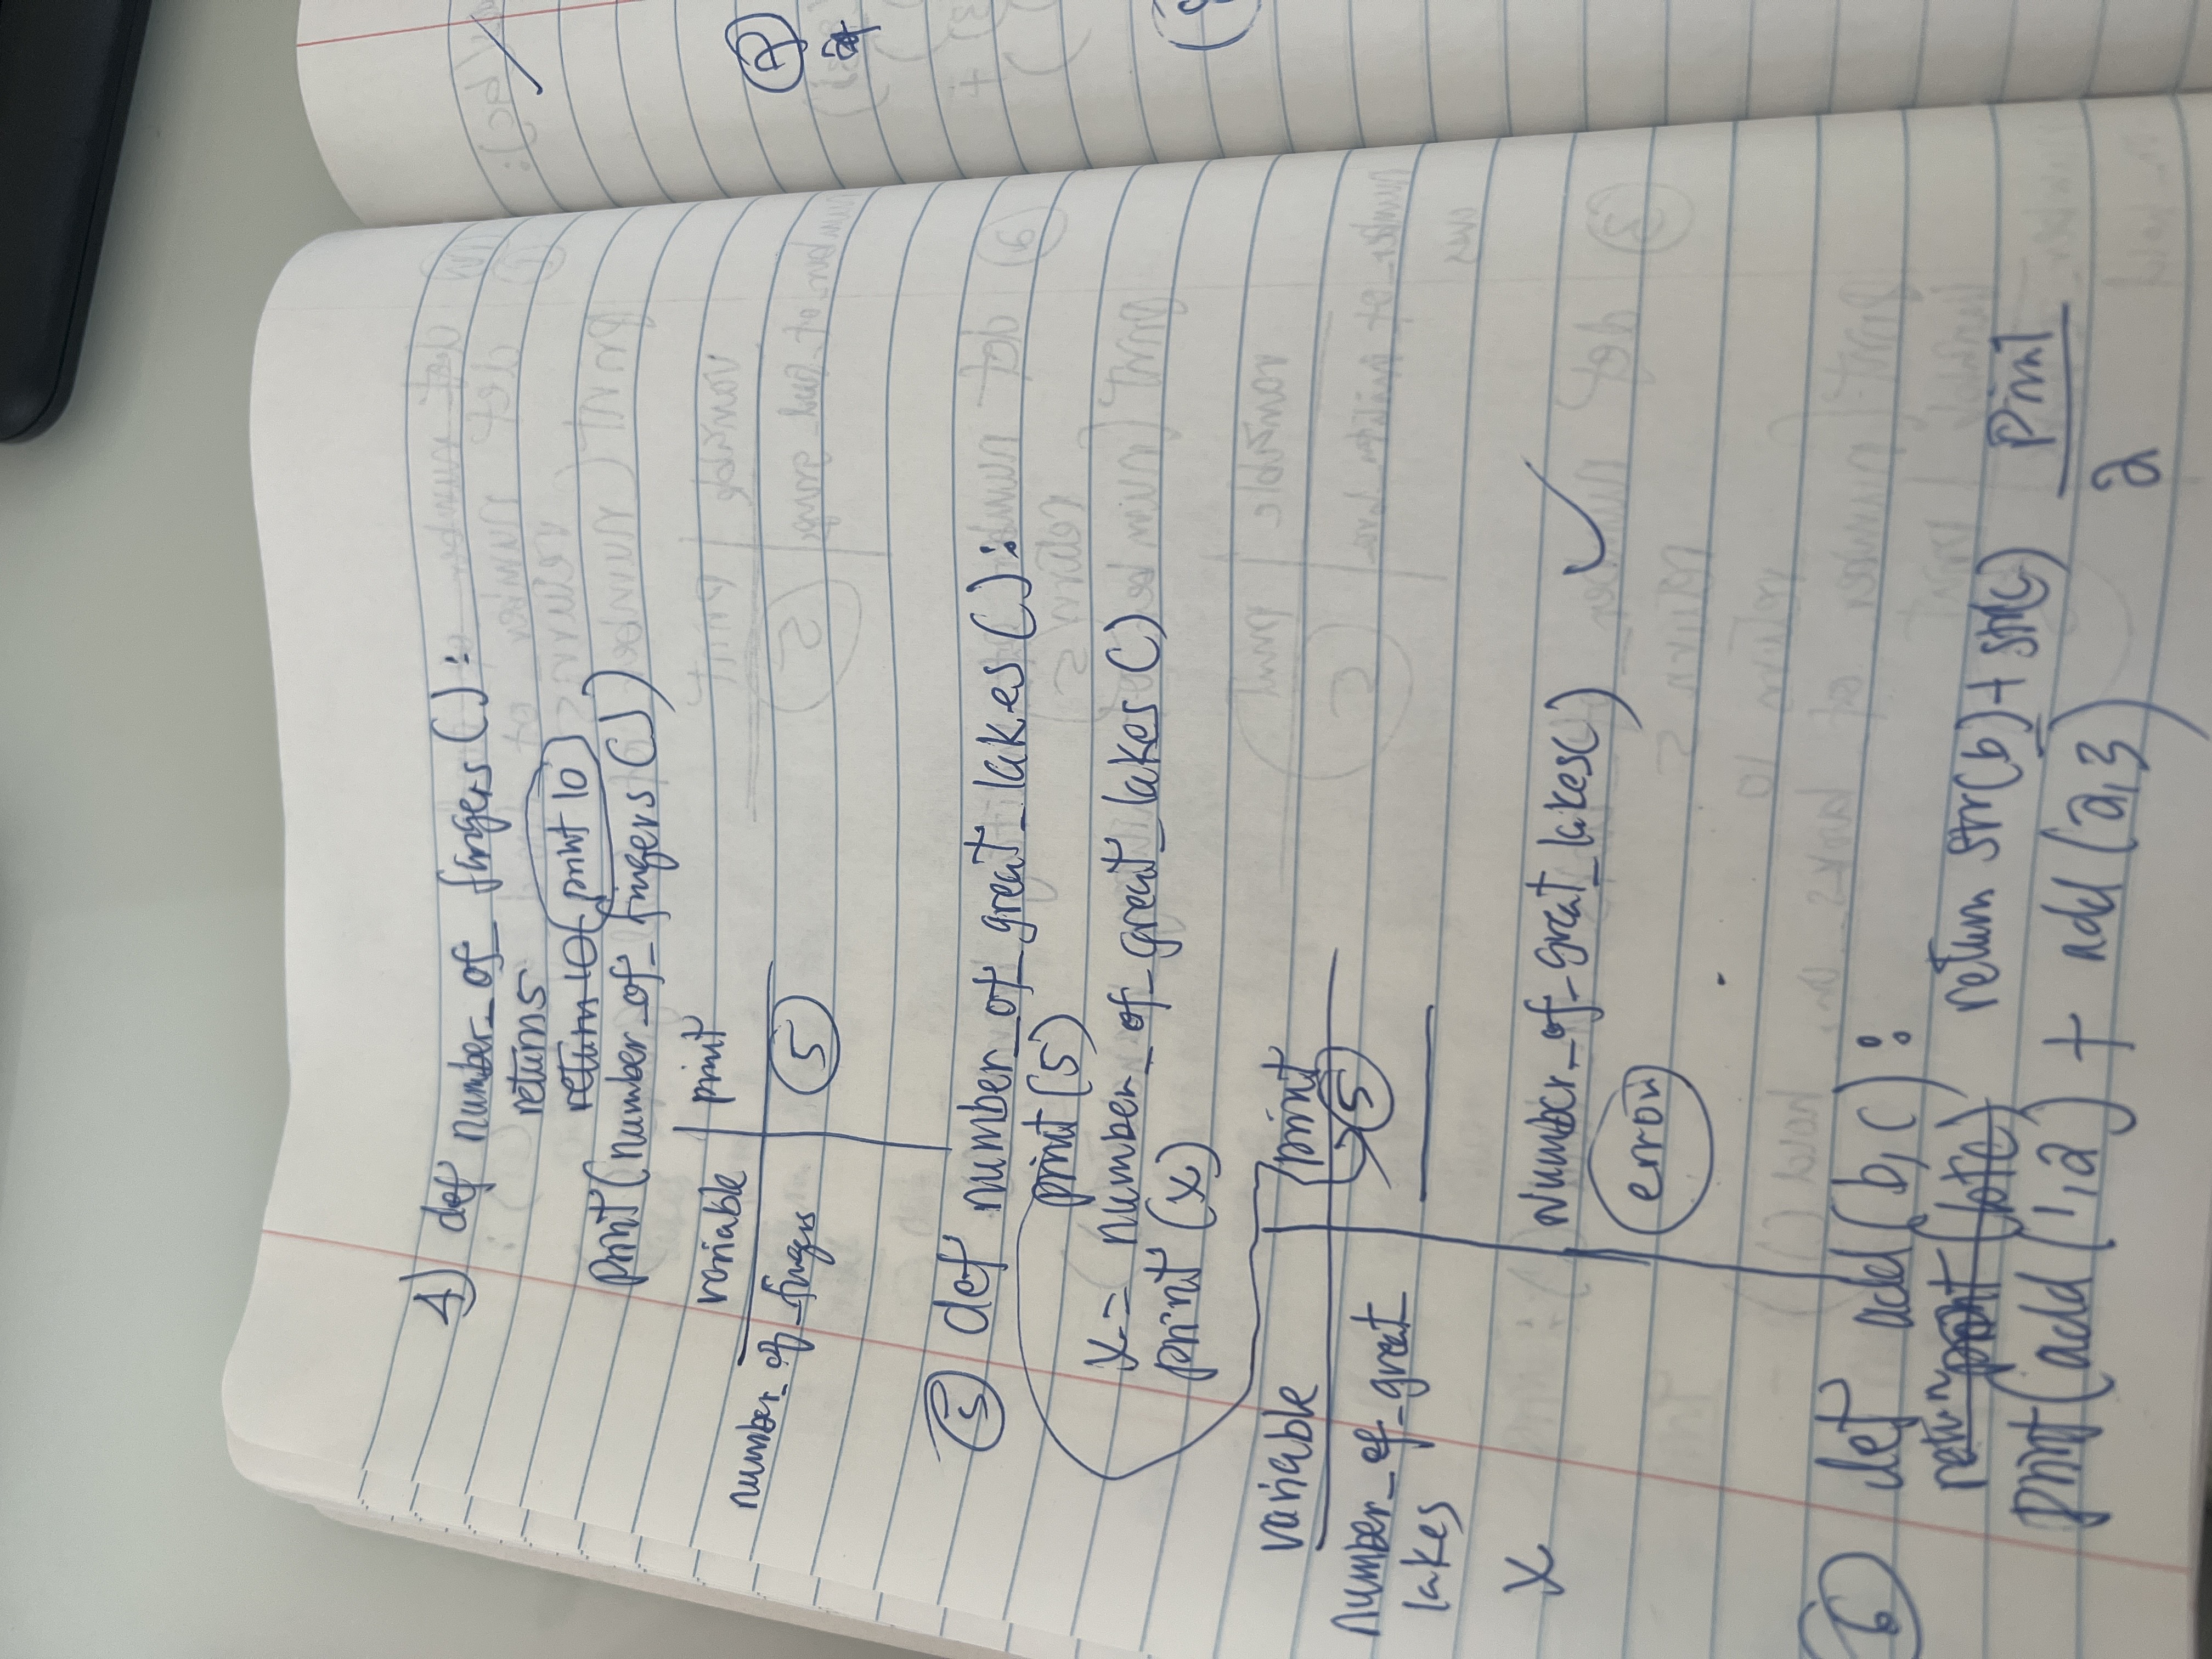 4) def number_of_fingers():
return5
return 10 print 10
print(number_of_fingers())
variable print
number_of_fingers 5
5 def number_of_great_lakes():
print(5)
x = number_of_great_lakes()
print(x)
variable print
number_of_great_ 5
lakes
x number_of_great_lakes()
error
6 def add(b,c):
return print(b+c) return str(b)+str(c) print
print(add(1,2) + add(2,3) 2